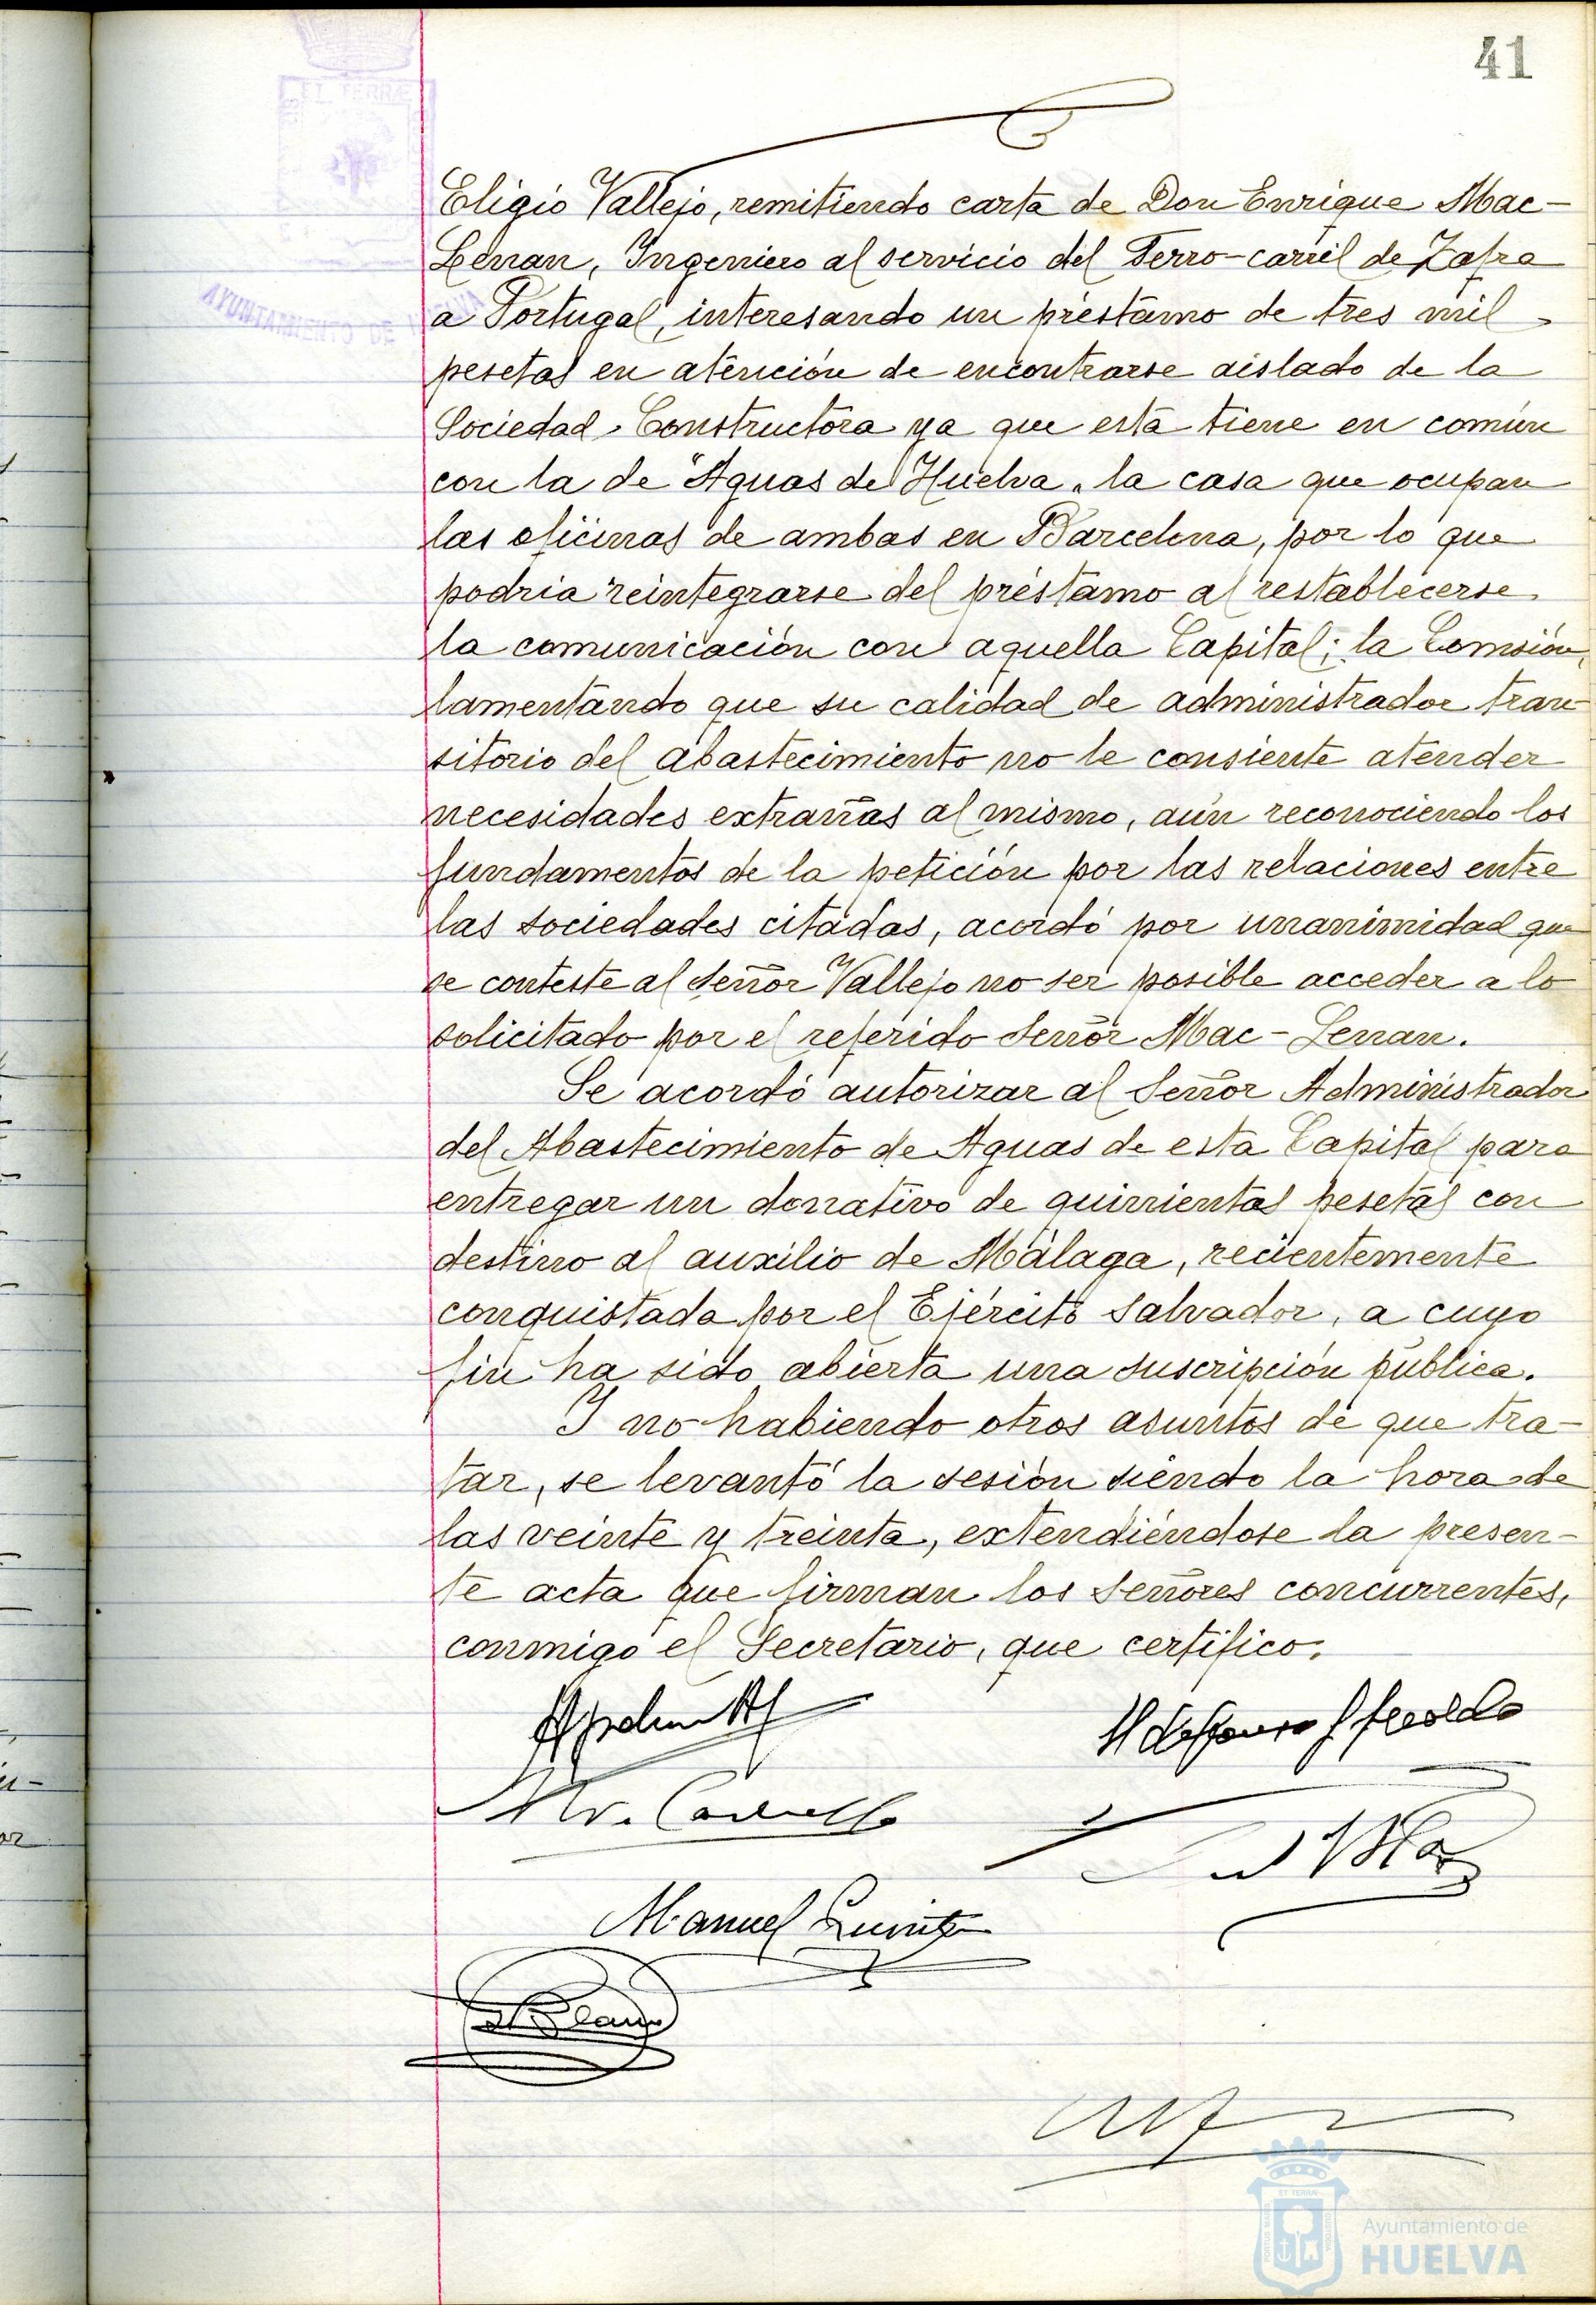 41
Eligio Vallejo, remitiendo carta de Don Enrique Mac-
Lenan, Ingeniero al servicio del Ferro-carril de Zafra
a Portugal, interesando un préstamo de tres mil
pesetas en atención de encontrarse aislado de la
Sociedad Constructora ya que esta tiene en común
con la de "Aguas de Huelva" la casa que ocupan
las oficinas de ambas en Barcelona, por lo que
podría reintegrarse del préstamo al restablecerse
la comunicación con aquella Capital; la Comisión,
lamentando que su calidad de administrador tran-
sitorio del abastecimiento no le consiente atender
necesidades extrañas al mismo, aún reconociendo los
fundamentos de la petición por las relaciones entre
las sociedades citadas, acordó por unanimidad que
se conteste al Señor Vallejo no ser posible acceder a lo
solicitado por el referido Señor Mac-Lenan.
Se acordó autorizar al Señor Administrador
del Abastecimiento de Aguas de esta Capital para
entregar un donativo de quinientas pesetas con
destino al auxilio de Málaga, recientemente
conquistada por el Ejército Salvador, a cuyo
fin ha sido abierta una suscripción pública.
Y no habiendo otros asuntos de que tra-
tar, se levantó la sesión siendo la hora de
las veinte y treinta, extendiéndose la presen-
te acta que firman los Señores concurrentes,
conmigo el Secretario, que certifico.
Manuel
ET TERRÆ
AYUNTAMIENTO DE
Ayuntamiento de
HUELVA